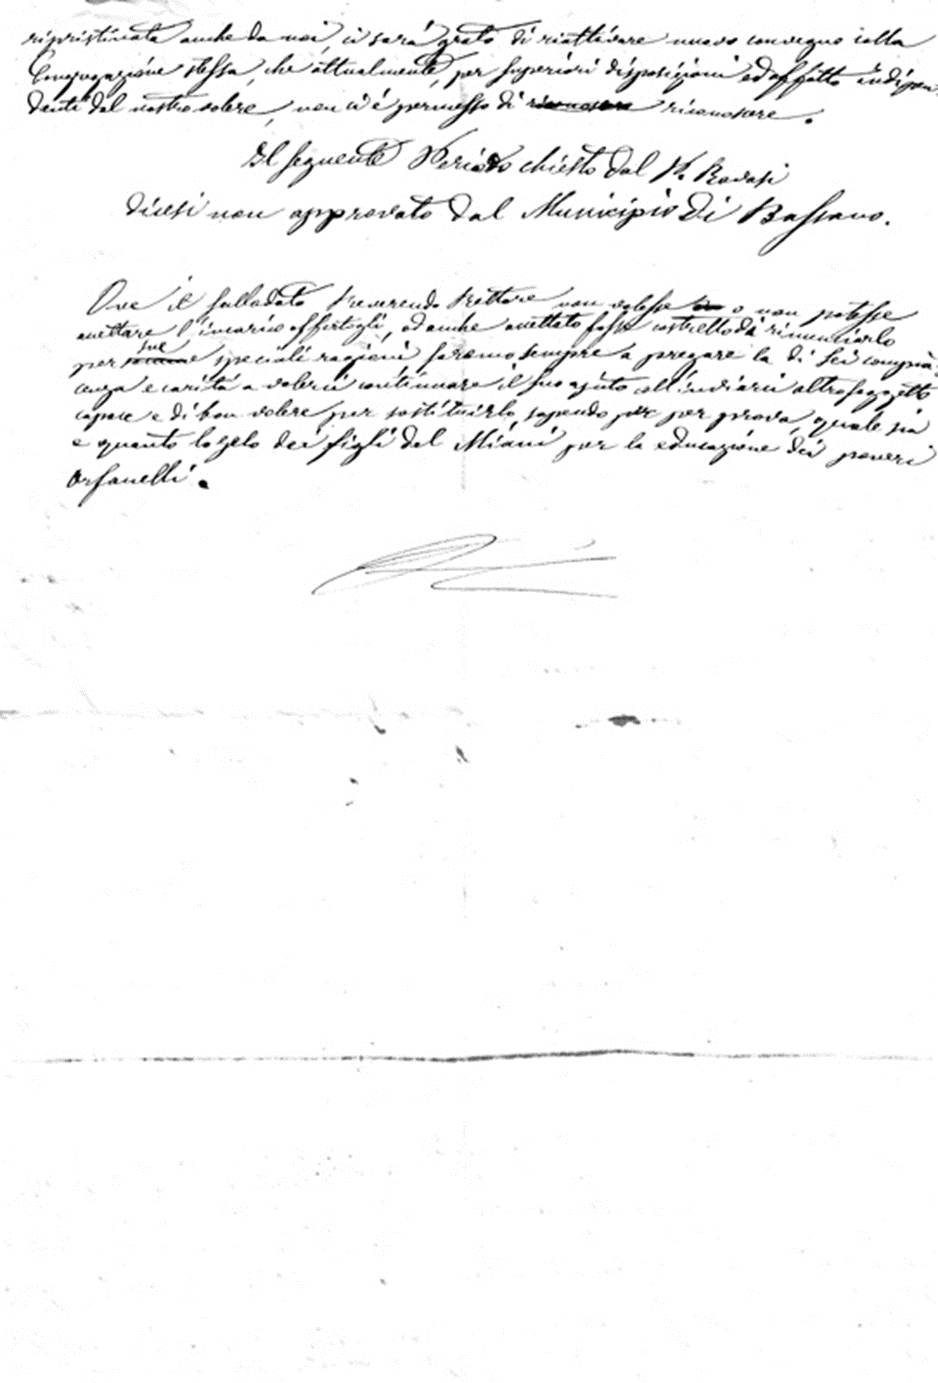 ripristinata anche da noi, ci sarà grato di riattivare nuovo convegno colla
Congregazione stessa, che attualmente, per superiori disposizioni ed affatto indipen
denti dal nostro volere, non ci è permesso di riconoscere riconoscere.
Il seguente Periodo chiesto dal P. Ravasi
dicesi non approvato dal Municipio di Bassano.
Ove il sullodato Reverendo Rettore non volesse o non potesse
accettare l'incarico offertogli, od anche accettato fosse costretto da rinunciarlo
per sue speciali ragioni saremo sempre a pregare la di Lei compia
cenza e carità a volerci continuare il suo ajuto coll'inviarci altro soggetto
capace e di bon volere per sostituirlo, sapendo per prova, quale sia
e quanto lo zelo dei figli del Miani per la educazione dei poveri
Orfanelli.